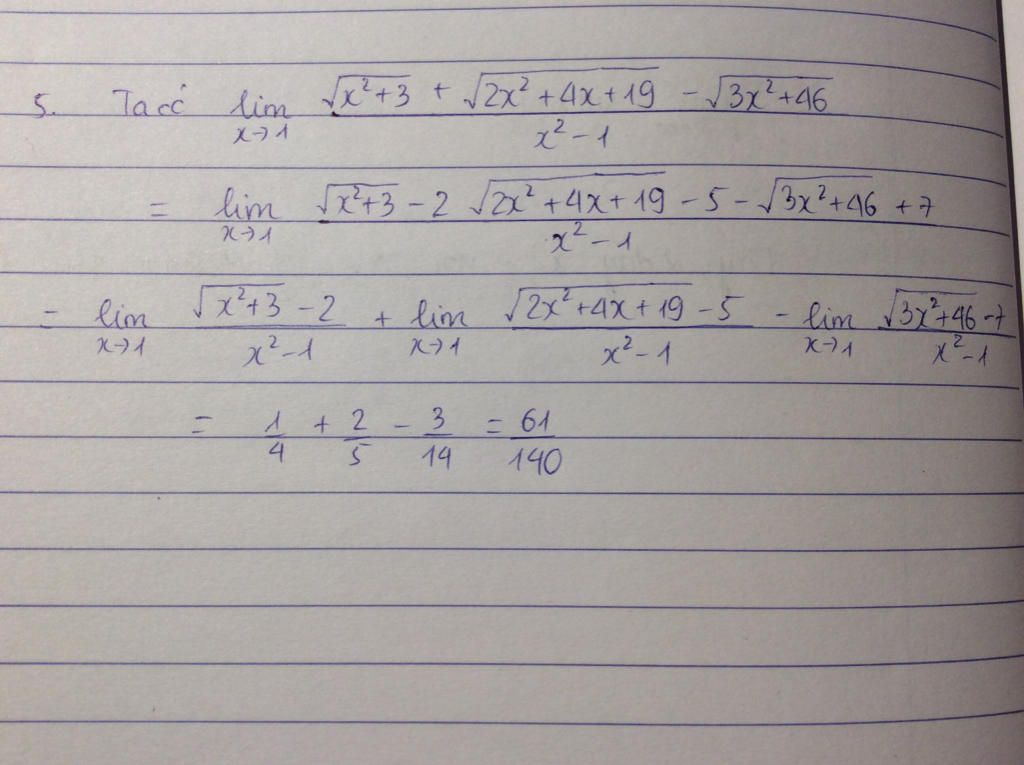 5. Ta có lim x→1 (√(x²+3) + √(2x²+4x+19) - √(3x²+46)) / (x²-1)
= lim x→1 (√(x²+3) - 2 √(2x²+4x+19) - 5 - √(3x²+46) + 7) / (x²-1)
= lim x→1 (√(x²+3) - 2) / (x²-1) + lim x→1 (√(2x²+4x+19) - 5) / (x²-1) - lim x→1 (√(3x²+46) - 7) / (x²-1)
= 1/4 + 2/5 - 3/14 = 61/140